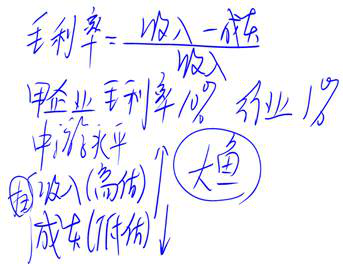 毛利率=收入-成本/收入
甲企业毛利率10% 行业1%
中游水平
收入(高估)
成本(低估)
大鱼